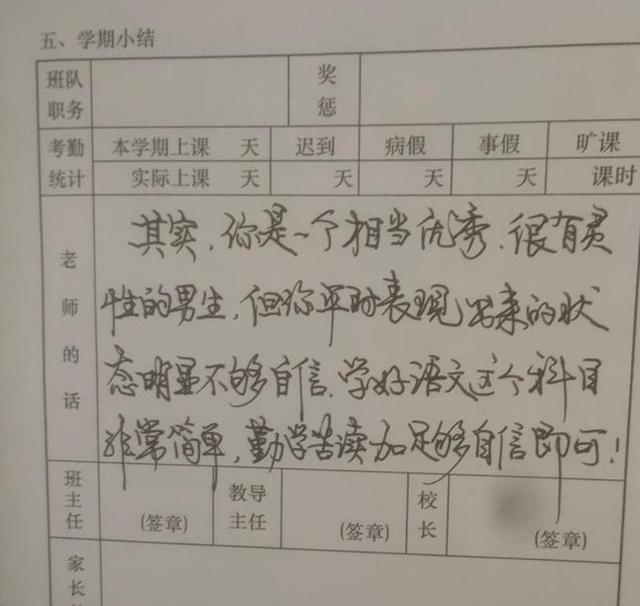 五、学期小结
班队职务 奖惩
考勤统计 本学期上课 天 迟到 病假 事假 旷课
实际上课 天 天 天 天 课时
老师的话
其实,你是一个相当优秀、很有灵
性的男生,但你平时表现出来的状
态明显不够自信,学好语文这个科目
非常简单,勤学苦读加足够自信即可!
班主任 (签章) 教导主任 (签章) 校长 (签章)
家长